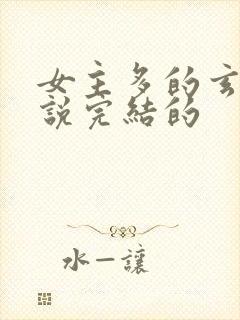 女主多的玄
說完結的
水一讓